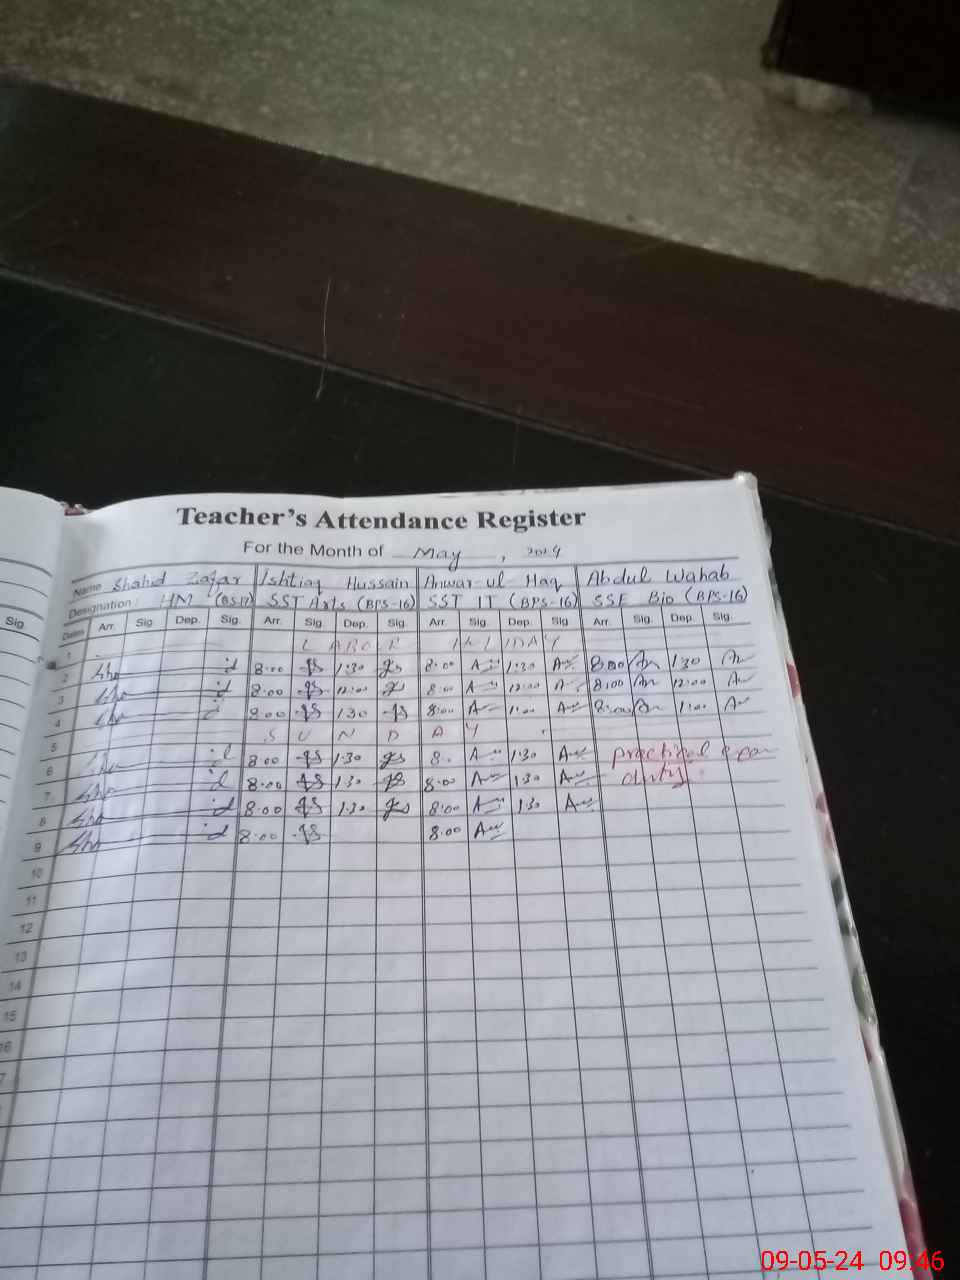 Teacher's Attendance Register
For the Month of May, 2024
Name Shahid Zafar Ishtiaq Hussain Anwar-ul-Haq Abdul Wahab
Designation: HM (BS-17) SST Arts (BPS-16) SST IT (BPS-16) SSE Bio (BPS-16)
Sig.
Dates Arr. Sig. Dep. Sig. Arr. Sig. Dep. Sig. Arr. Sig. Dep. Sig Arr. Sig. Dep. Sig.
1 LABOUR HOLIDAY
2 8:00 1:30 8:00 1:30 8:00 1:30
3 8:00 12:00 8:00 12:00 8:00 12:00
4 8:00 1:30 8:00 1:00 8:00 1:00
5 SUNDAY
6 8:00 1:30 8: 1:30 practical exam
7 8:00 1:30 8:00 1:30 duty
8 8:00 1:30 8:00 1:30
9 8:00 8:00
10
11
12
13
14
15
16
7
09-05-24 09:46